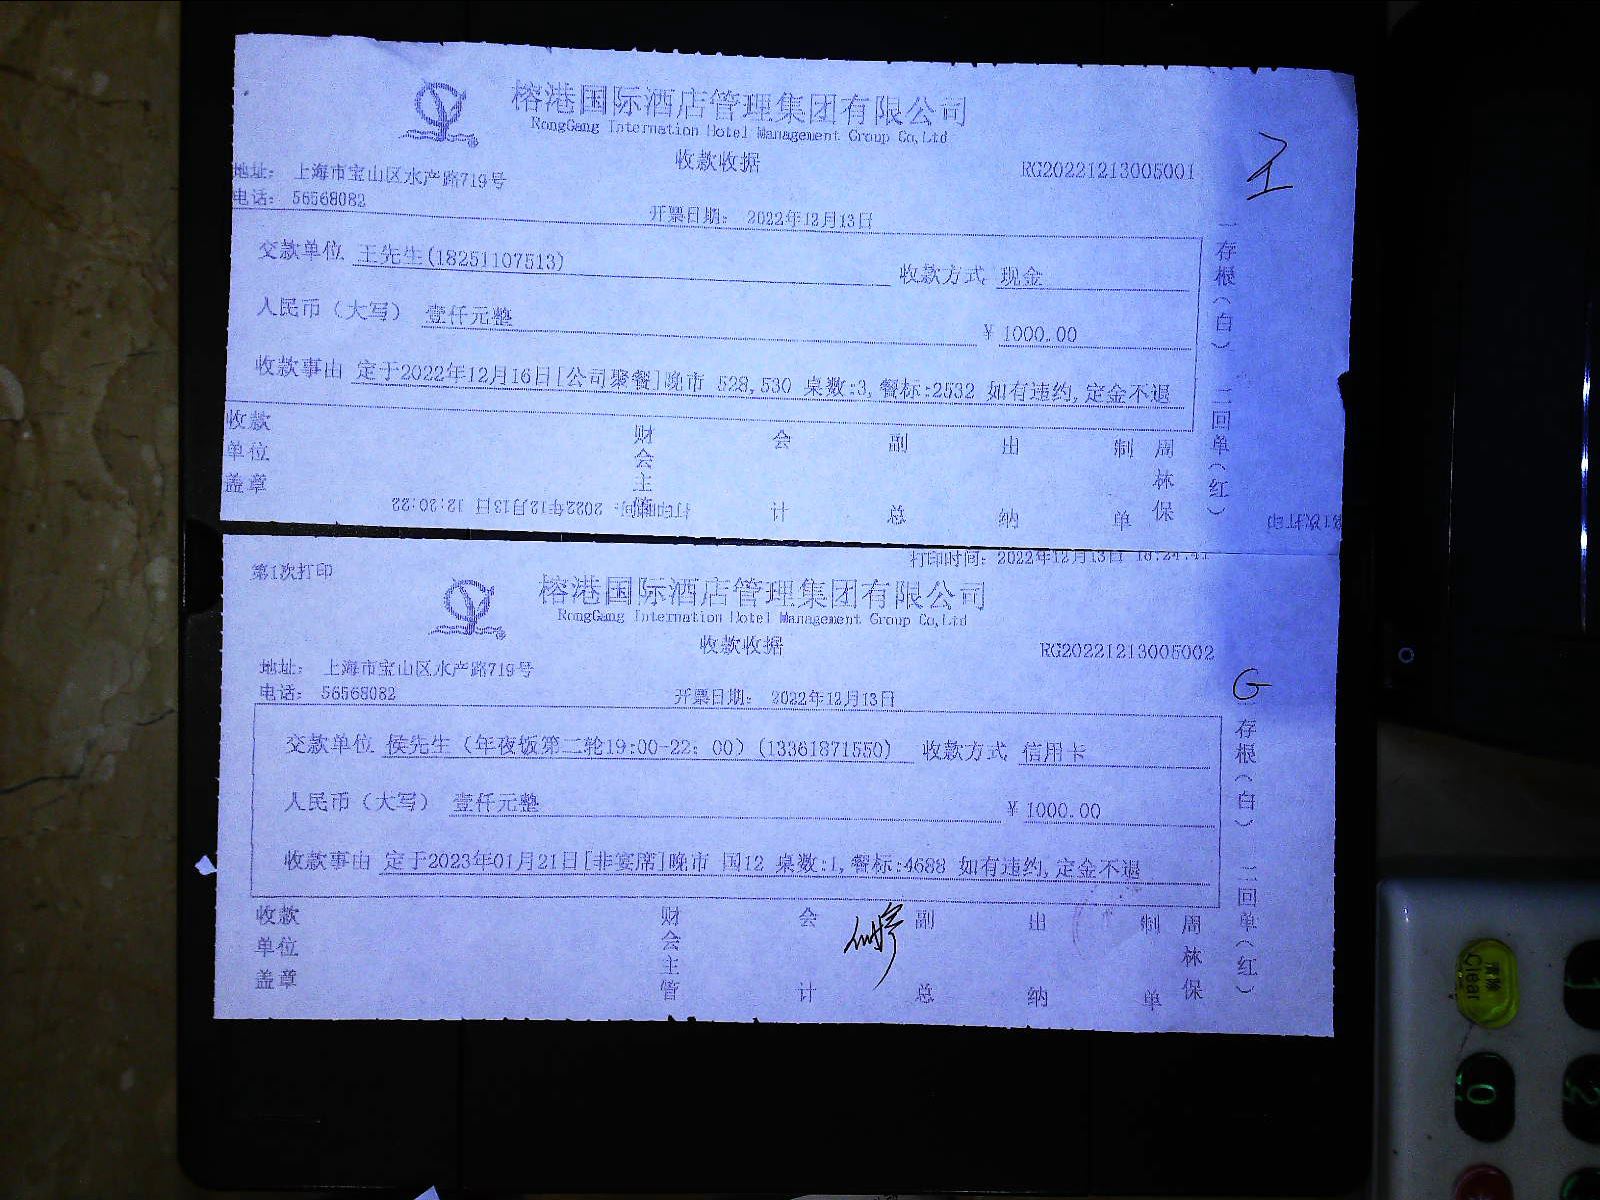 榕港国际酒店管理集团有限公司
RongGang International Hotel Management Group Co,Ltd
收款收据
RG20221213005001
地址： 上海市宝山区水产路719号
电话： 56568082
开票日期： 2022年12月13日
交款单位 王先生(18251107513) 收款方式 现金
人民币（大写） 壹仟元整 ¥ 1000.00
收款事由 定于2022年12月16日[公司聚餐]晚市 528,530 桌数:3,餐标:2532 如有违约,定金不退
一存根（白） 二回单（红）
收款单位盖章 财会主管 会计 副总 出纳 制单 周林保
打印时间： 2022年12月13日 12:20:22
第1次打印
打印时间： 2022年12月13日
第1次打印
榕港国际酒店管理集团有限公司
RongGang International Hotel Management Group Co,Ltd
收款收据
RG20221213005002
地址： 上海市宝山区水产路719号
电话： 56568082
开票日期： 2022年12月13日
G
交款单位 侯先生（年夜饭第二轮19:00-22：00）(13361871550) 收款方式 信用卡
人民币（大写） 壹仟元整 ¥ 1000.00
收款事由 定于2023年01月21日[非宴席]晚市 国12 桌数:1,餐标:4688 如有违约,定金不退
一存根（白） 二回单（红）
收款单位盖章 财会主管 会计 副总 出纳 制单 周林保
清除
Clear
0